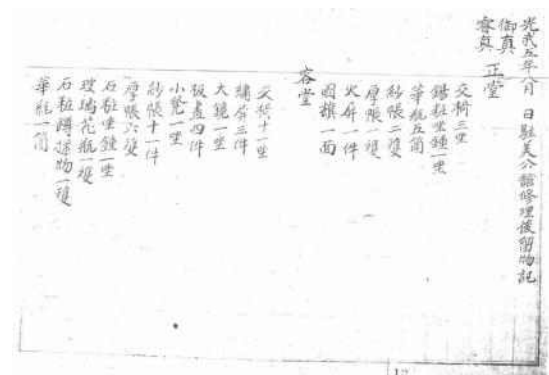 光武五年八月 日駐美公館修理後留物記
御真
睿真 正堂
交椅三坐
錫粧坐鍾一坐
華瓶五箇
紗帳二雙
厚帳一雙
火屏一件
國旗一面
客堂
交椅十一坐
繡屏三件
大鏡一坐
板畵四件
小凳一坐
紗帳十一件
厚帳六雙
石粧坐鍾一坐
玻璃花瓶一雙
石粧蹲獸物一雙
華瓶一箇